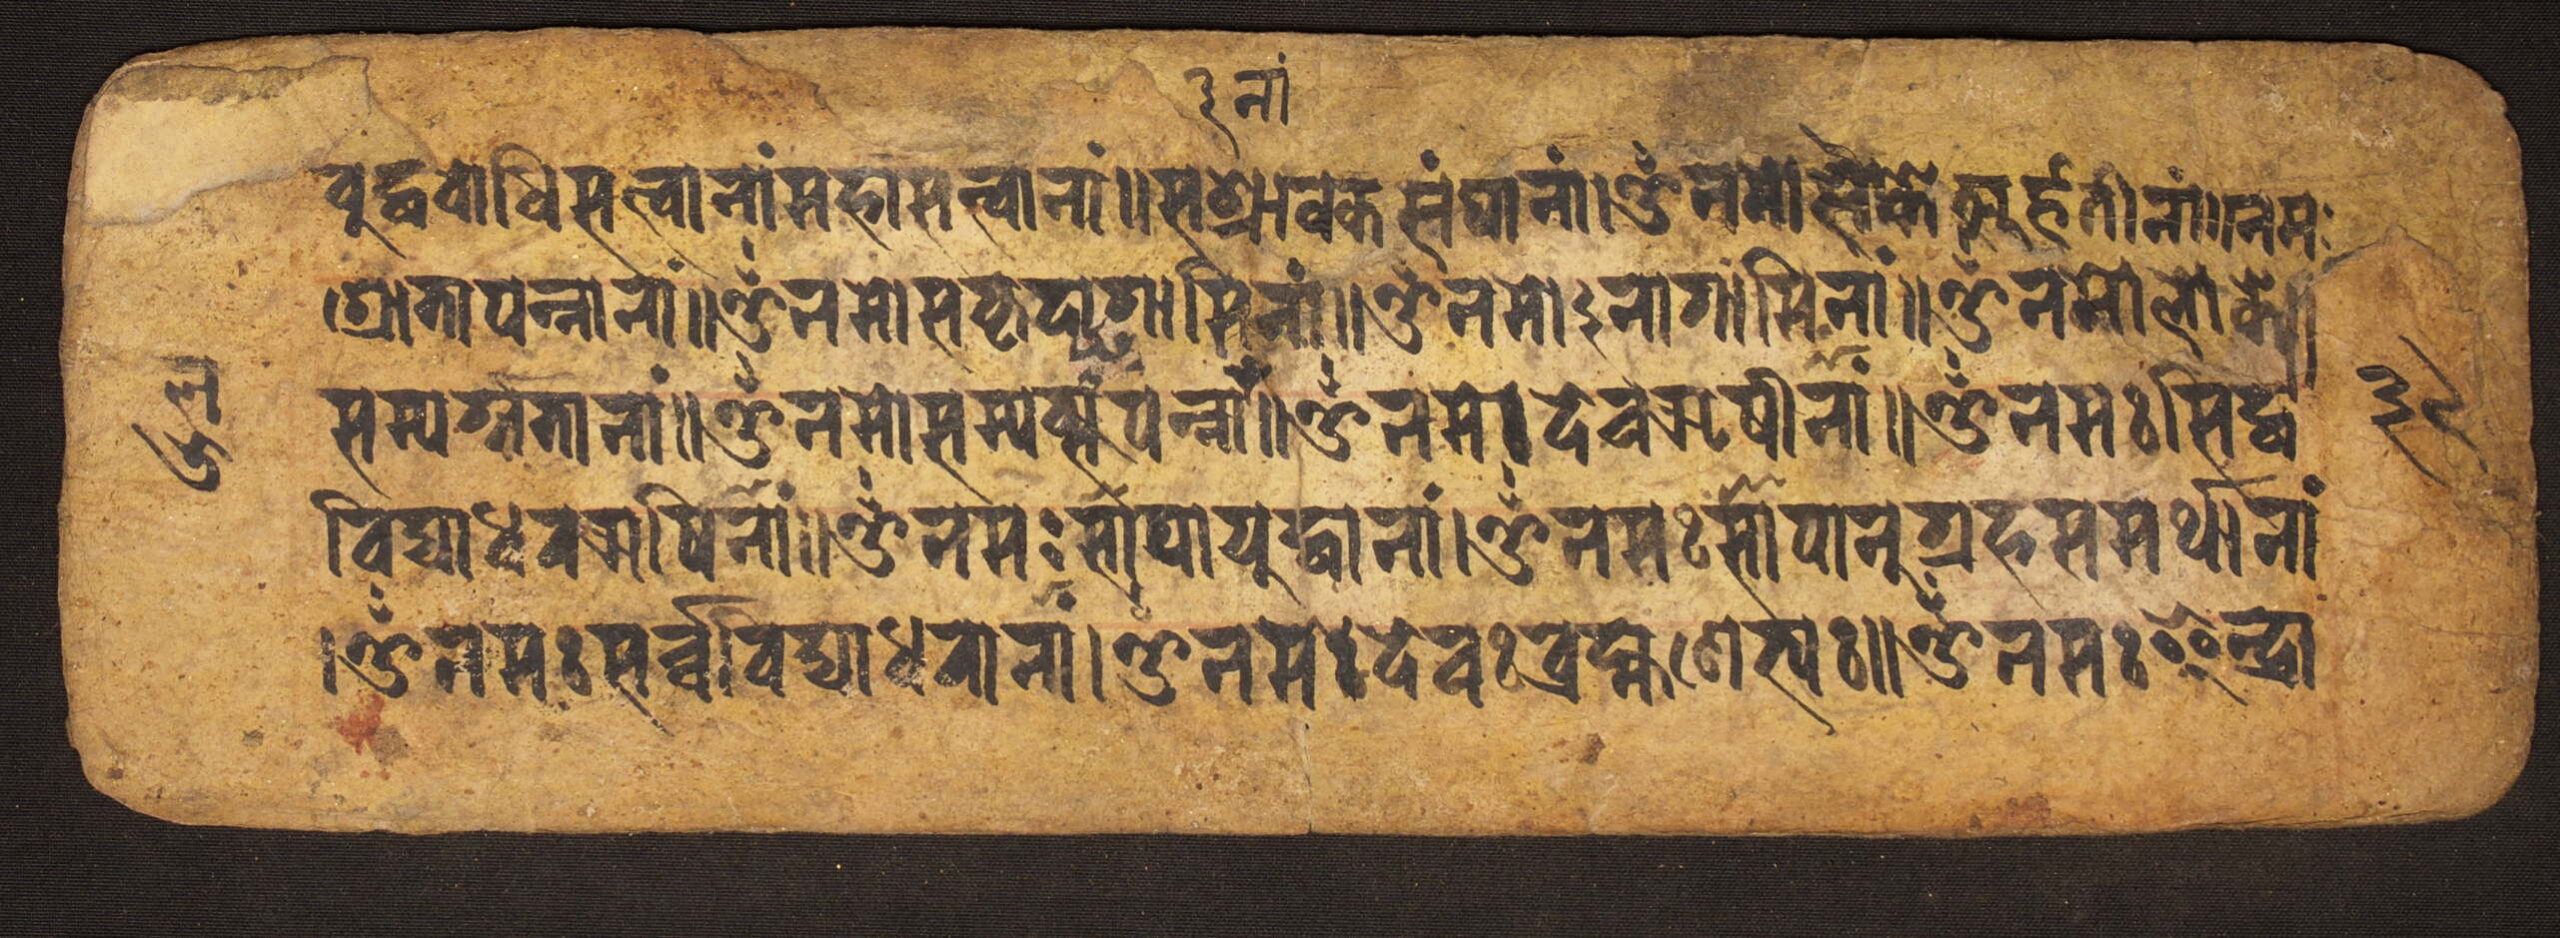 ३ नां
बुद्धबोधिसत्वानांमहासत्वानां॥सश्रावकसंघानां।ॐनमोलोकेस्मुर्हतीनां॥नमः
श्रोतापन्नानां॥ॐनमोसकृदागामिनां॥ॐनमोऽनागामिनां॥ॐनमोलोके॥
सम्यग्गतानां॥ॐनमोसम्यक्संपन्नां॥ॐनमो।देवऋषीनां॥ॐनमःसिद्ध
विद्याधरऋषिनां॥ॐनमःर्सापायुद्धानां।ॐनमःर्सापानुग्रहसमर्थानां
।ॐनमःसर्व्वविद्याधरानां।ॐनमः।देवःब्रह्मणेत्यः॥ॐनमःइन्द्रा